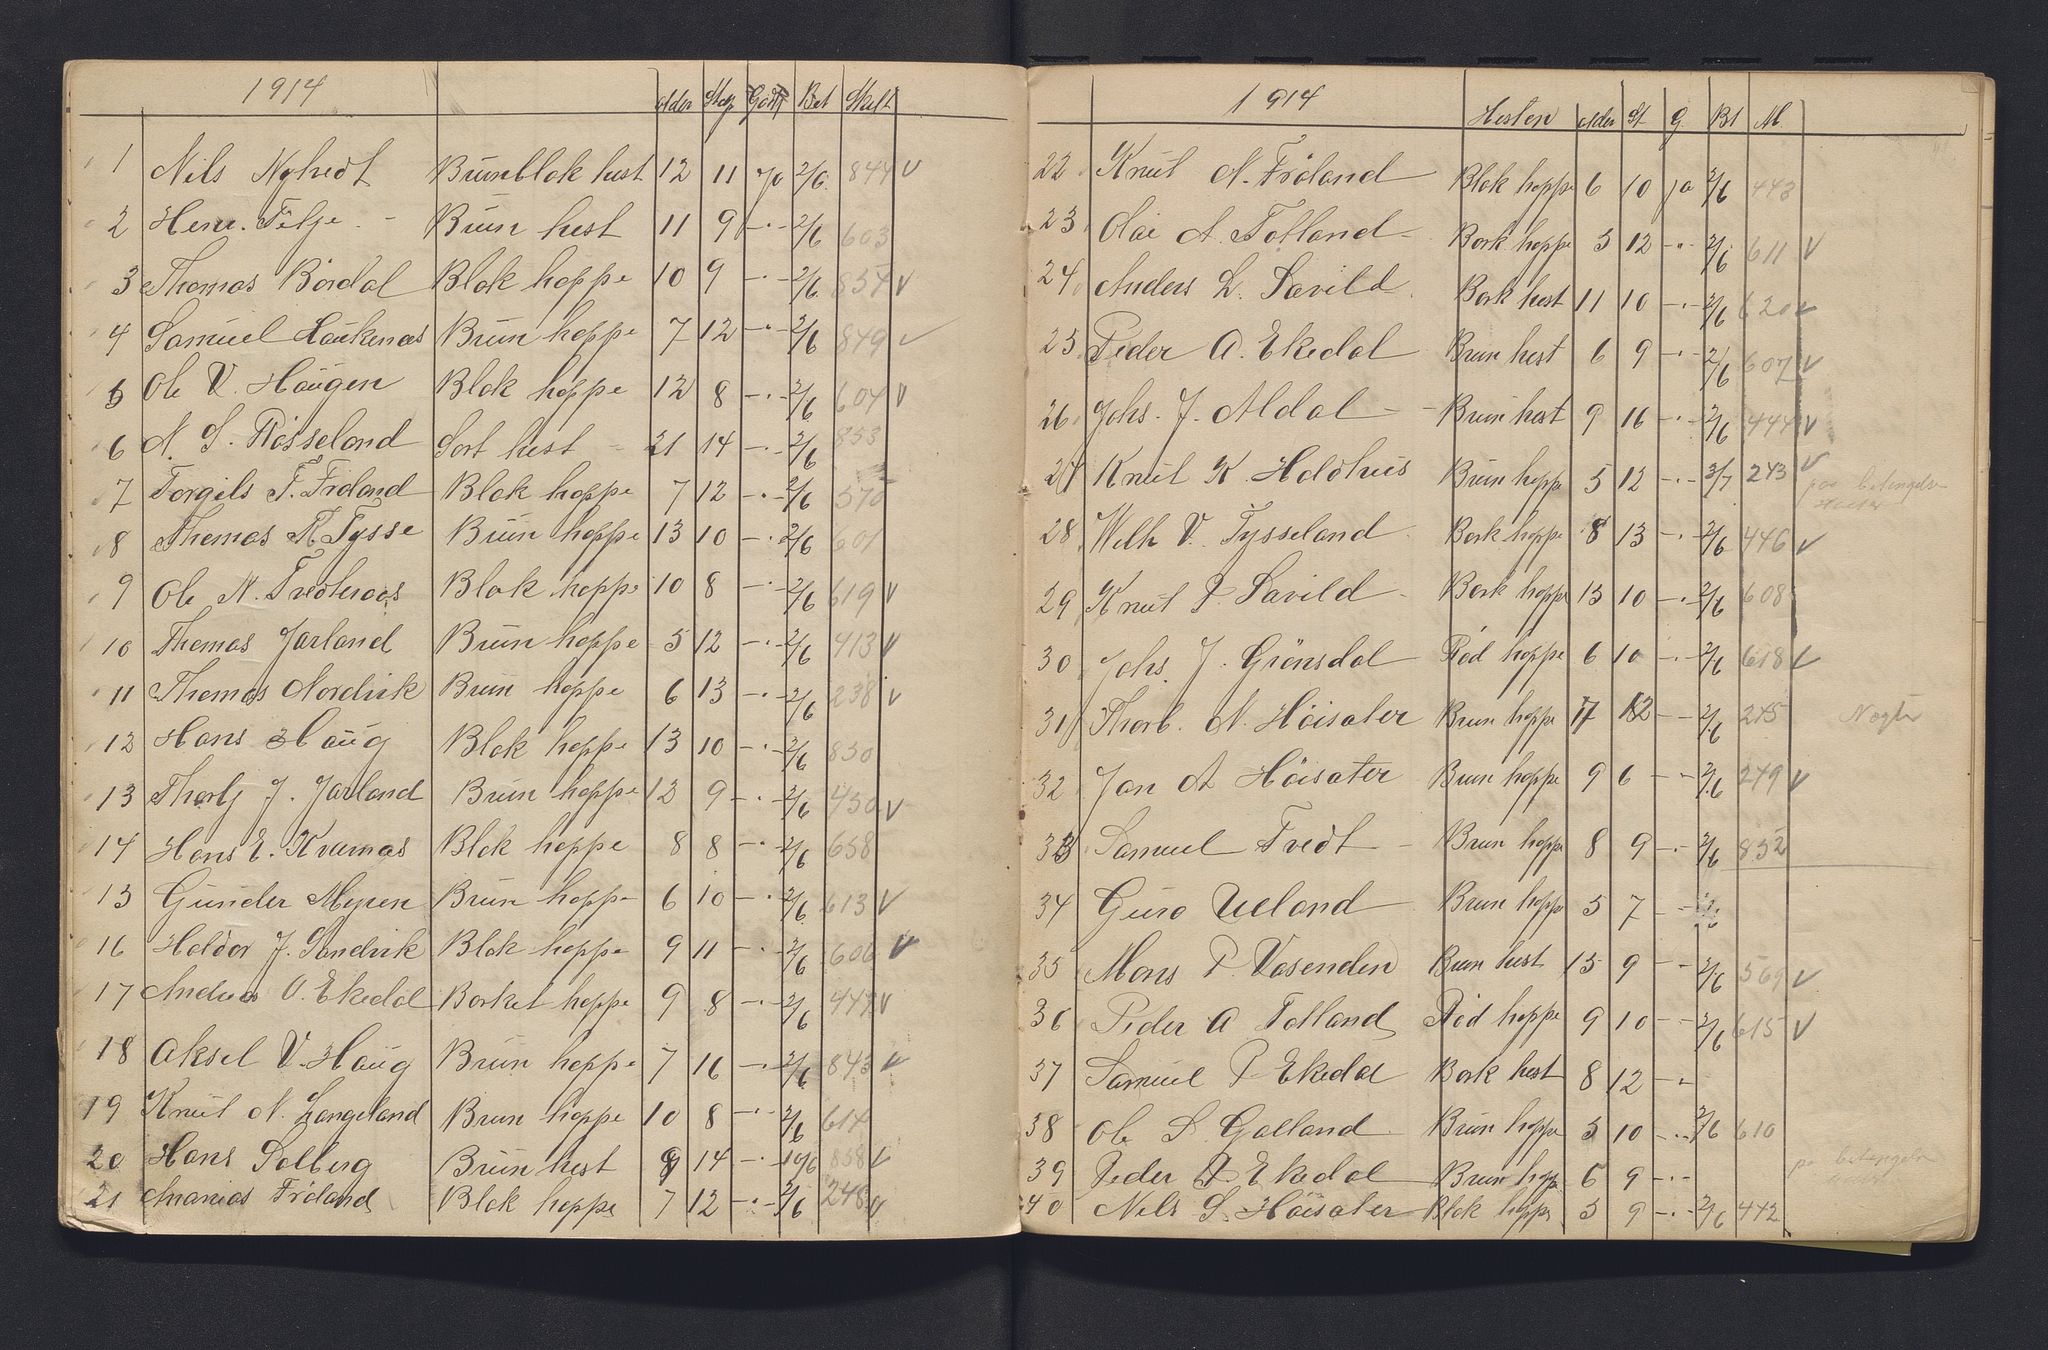 1914 alder Bet Skilt
1 Nils Nyhedt Brunblak hest 12 11 ja 2/6 844 V
2 Henr. Filje - Brun hest 11 9 -"- 2/6 603
3 Thomas Bördal Blak hoppe 10 9 -"- 2/6 854 V
4 Samuel Haukenæs Brun hoppe 7 12 -"- 2/6 849 V
5 Ole V. Haugen Blak hoppe 12 8 -"- 2/6 604 V
6 N. S. Rösseland Sort hest - 21 14 -"- 2/6 853
7 Torgils T. Fröland Blak hoppe 7 12 -"- 2/6 570
8 Thomas R. Tysse Brun hoppe 13 10 -"- 2/6 601
9 Ole N. Tvedteraas Blak hoppe 10 8 -"- 2/6 619 V
10 Thomas Jarland Brun hoppe 5 12 -"- 2/6 413 V
11 Thomas Nordvik Brun hoppe 6 13 -"- 2/6 238 V
12 Hans Haug Blak hoppe 13 10 -"- 2/6 850
13 J. Jarland Brun hoppe 12 9 -"- 2/6 450 V
14 Hans E. Blak hoppe 8 8 -"- 2/6 658
15 Gunder Myren Brun hoppe 6 10 -"- 2/6 613 V
16 Haldor J. Sandvik Blak hoppe 9 11 -"- 2/6 606 V
17 Andreas O. Ekedal Borket hoppe 9 8 -"- 2/6 447 V
18 Aksel V. Haug Brun hoppe 7 16 -"- 2/6 843 V
19 Knut N. Langeland Brun hoppe 10 8 -"- 2/6 614
20 Hans Solberg Brun hest 9 14 -"- 10/6 858 V
21 Ananias Fröland Blak hoppe 7 12 -"- 2/6 248 V
1914 Hesten alder St G. Bt M
22 Knut N. Fröland Blak hoppe 6 10 ja 2/6 443
23 Olai A. Totland - Bork hoppe 5 12 -"- 2/6 611 V
24 Anders L. Sævild Bork hest 11 10 -"- 2/6 620 V
25 Peder A. Ekedal Brun hest 6 9 -"- 2/6 607 V
26 Johs. J. Aldal - Brun hest 9 16 -"- 2/6 444 V
27 Knut K. Holdhus Brun hoppe 5 12 -"- 3/7 243 V paa betingelse
28 Wilh V. Tysseland Bork hoppe 8 13 -"- 2/6 446 V
29 Knut P. Sævild - Bork hoppe 13 10 -"- 2/6 608
30 Johs. J. Grönsdal Röd hoppe 6 10 -"- 2/6 618 V
31 Thorb. N. Höisæter Brun hoppe 7 12 -"- 2/6 245
32 Jan A Höisæter Brun hoppe 9 6 -"- 2/6 249 V
33 Samuel Tvedt - Brun hoppe 8 9 -"- 2/6 852
34 Guro Ueland Brun hoppe 5 7 -"-
35 Mons P. Vasenden Brun hest 15 9 -"- 2/6 569 V
36 Peder A Totland Röd hoppe 9 10 -"- 2/6 615 V
37 Samuel P Ekedal Bork hest 8 12 -"-
38 Ole S. Galland Brun hoppe 5 10 -"- 2/6 610
39 Peder P Ekedal Brun hoppe 6 9 -"- pa betingelse
40 Nils S. Höisæter Blak hoppe 5 9 -"- 2/6 442